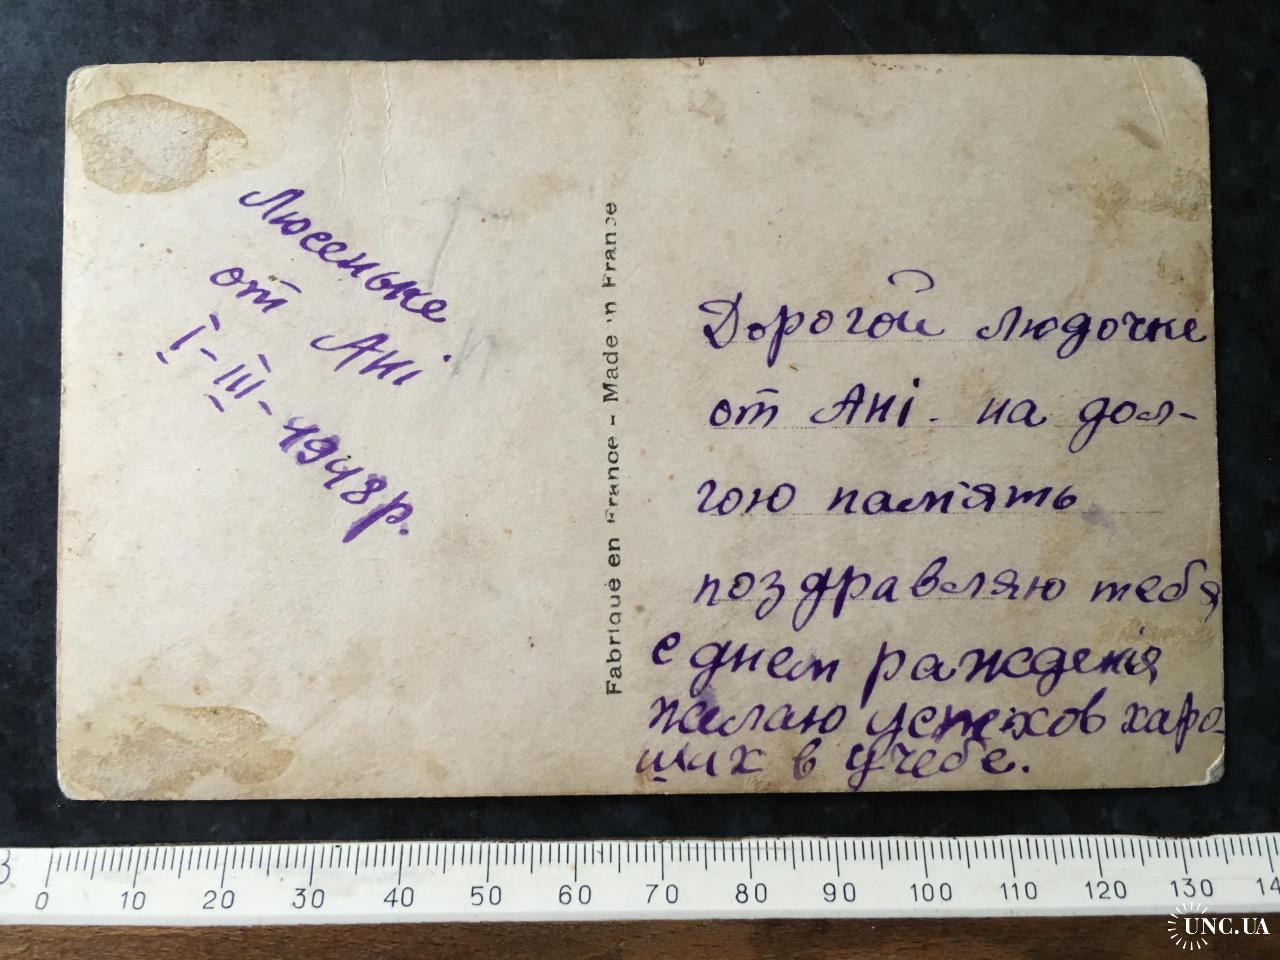 Люсеньке
от Ані
I-III-1948р.
Fabriqué en France - Made in France
Дорогой людочке
от Ані. на дол-
гою пам'ять
поздравляю тебя
с днем раждения
желаю успехов харо-
ших в учебе.
0 10 20 30 40 50 60 70 80 90 100 110 120 130 14
UNC.UA